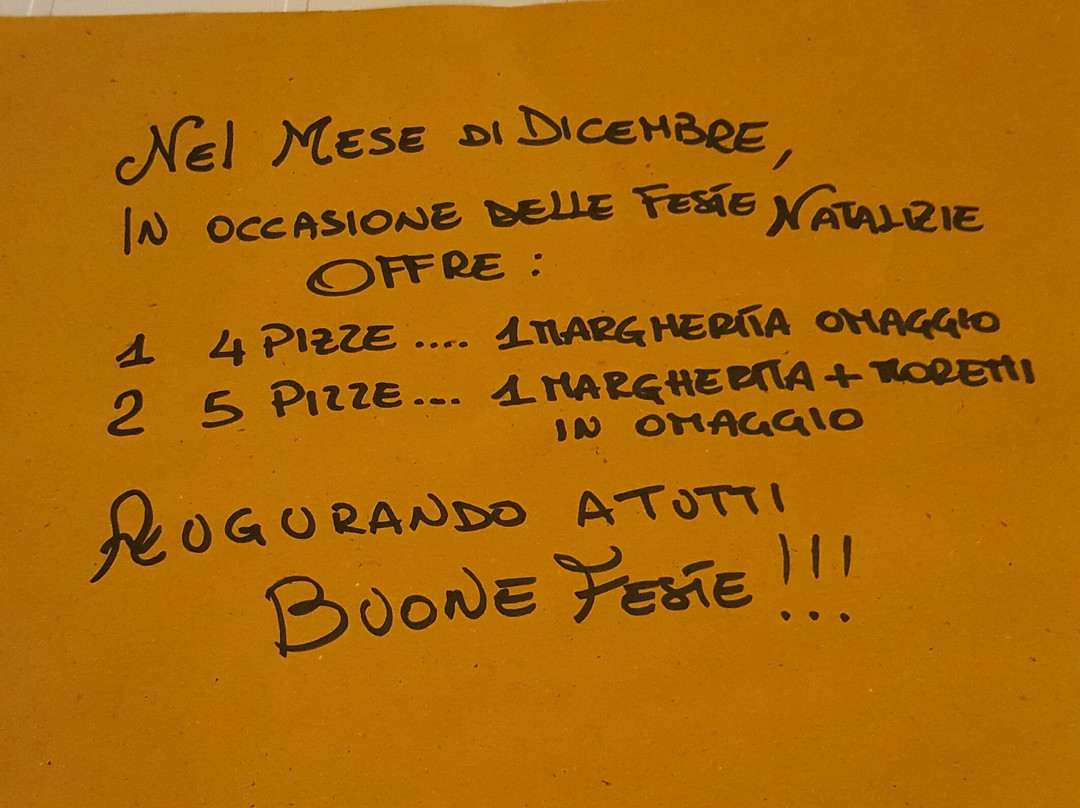 Nel MESE DI DICEMBRE,
IN OCCASIONE DELLE FESTE NATALIZIE
OFFRE :
1 4 PIZZE .... 1 MARGHERITA OMAGGIO
2 5 PIZZE ... 1 MARGHERITA + MORETTI
IN OMAGGIO
AUGURANDO A TUTTI
BUONE FESTE !!!